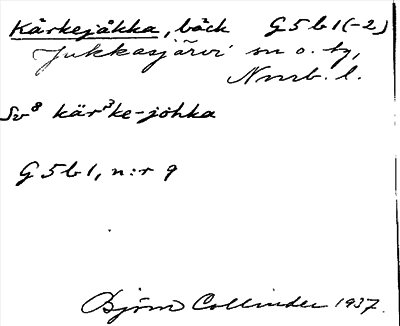 Kårkejåkka, bäck G5b1(-2)
Jukkasjärvi sn o. tg,
Nnrb. l.
Sv⁸ kärᵌke-johka
G5b1, n:r 9
Björn Collinder 1937.